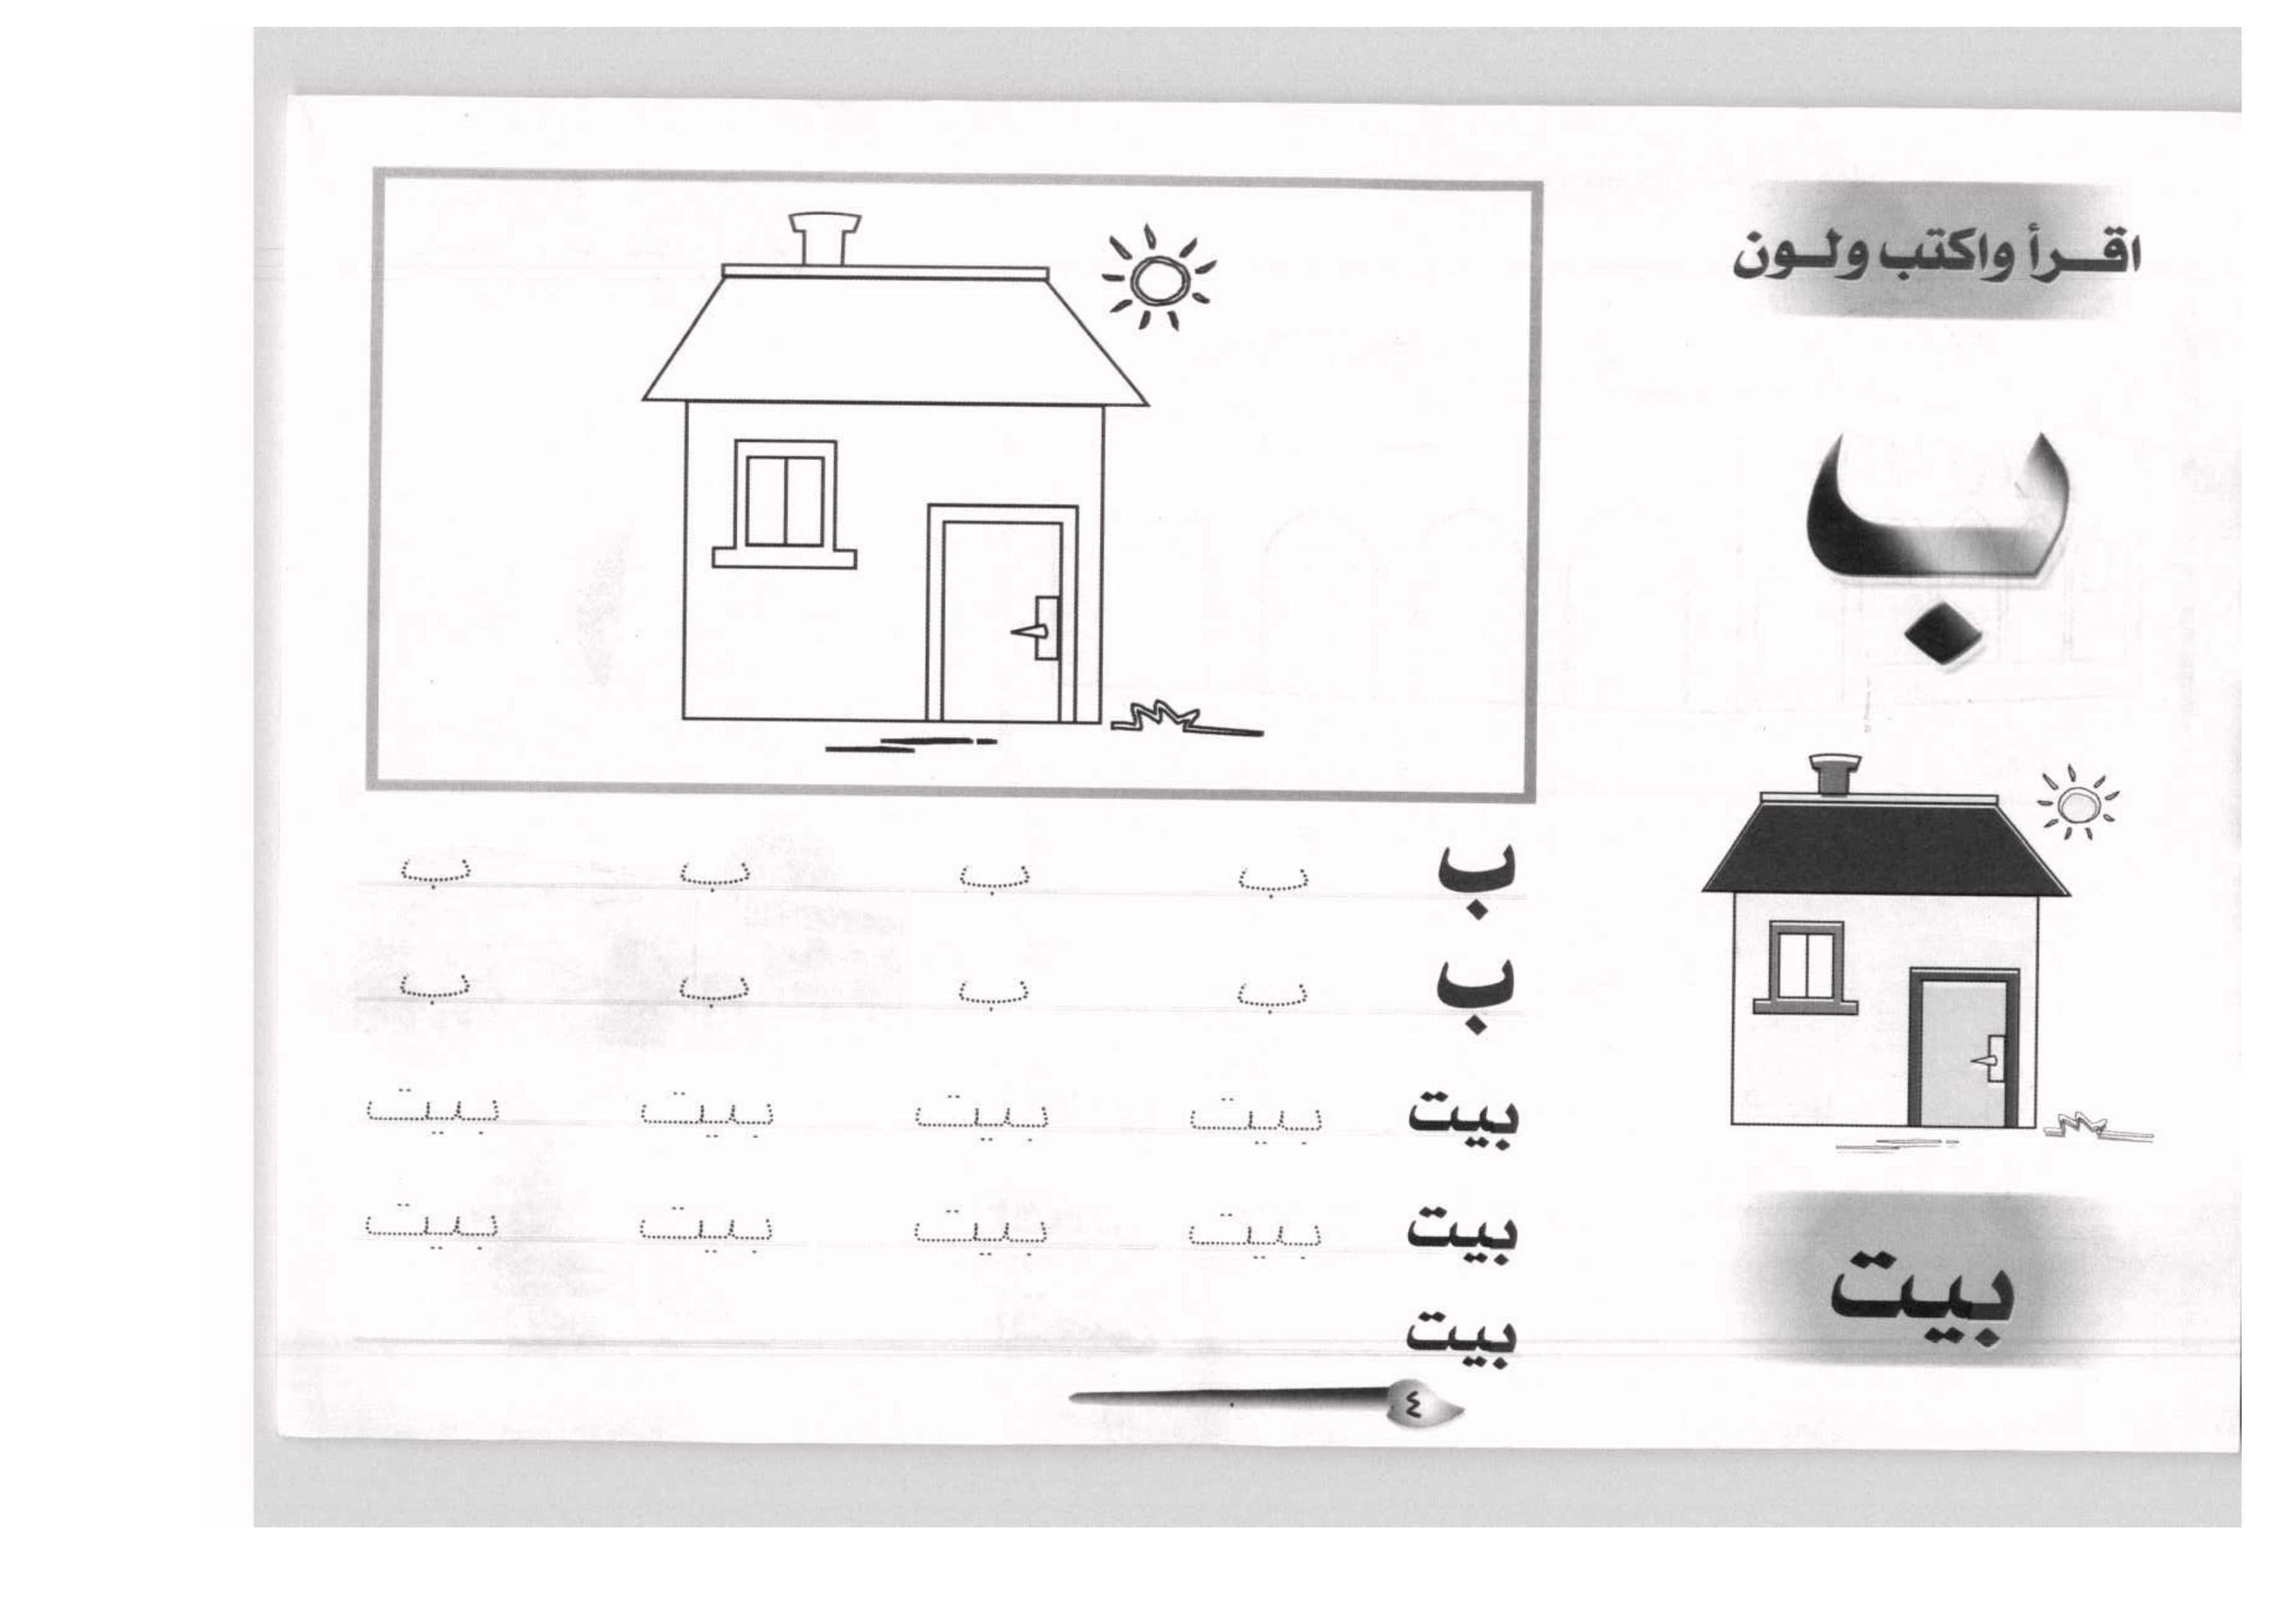 اقرأ واكتب ولون
ب
بيت
ب ب ب ب ب
ب ب ب ب ب
بيت بيت بيت بيت بيت
بيت بيت بيت بيت بيت
بيت
٤